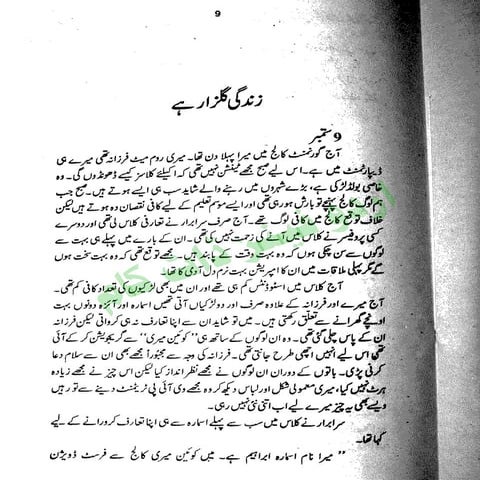 9
زندگی گلزار ہے
9 ستمبر
آج گورنمنٹ کالج میں میرا پہلا دن تھا۔ میری روم میٹ فرزانہ تھی میرے ہی
ڈیپارٹمنٹ میں ہے۔ اس لیے صبح مجھے ٹینشن نہیں تھی کہ اکیلے کلاسز کیسے ڈھونڈوں گی۔ وہ
خاصی بولڈ لڑکی ہے، بڑے شہروں میں رہنے والے شاید سب ہی ایسے ہوتے ہیں۔ صبح جب
ہم لوگ کالج پہنچے تو بارش ہو رہی تھی اور ایسے موسم تعلیم کے لیے کافی نقصان دہ ہوتے ہیں لیکن
خلاف توقع کالج میں کافی لوگ تھے۔ آج صرف سر ابرار نے تعارفی کلاس لی تھی اور دوسرے
کسی پروفیسر نے کلاس میں آنے کی زحمت نہیں کی تھی۔ ان کے بارے میں پہلے ہی بہت سے
لوگوں سے سن چکی ہوں کہ وہ بہت وقت کے پابند ہیں۔ مجھے توقع تھی کہ وہ بہت سخت ہوں
گے مگر پہلی ملاقات میں ان کا امپریشن بہت نرم دل آدمی کا تھا۔
آج کلاس میں اسٹوڈنٹس کم ہی تھے اور ان میں بھی لڑکیوں کی تعداد کافی کم تھی۔
آج میرے اور فرزانہ کے علاوہ صرف اور دو لڑکیاں آئی تھیں اسمارہ اور آئزہ دونوں بہت
اونچے گھرانے سے تعلق رکھتی ہیں۔ میں تو شاید ان سے اپنا تعارف نہ ہی کرواتی لیکن فرزانہ
ان کے پاس چلی گئی تھی۔ وہ ان لوگوں کے ساتھ ہی "کوئین میری" سے گریجویشن کر کے آئی
تھی اس لیے انہیں اچھی طرح جانتی تھی۔ فرزانہ کی وجہ سے مجبوراً مجھے بھی ان سے سلام دعا
کرنی پڑی۔ باتوں کے دوران ان لوگوں نے مجھے نظر انداز کیا لیکن اس چیز نے مجھے زیادہ
ہرٹ نہیں کیا، میری معمولی شکل اور لباس دیکھ کر وہ مجھے وی آئی پی ٹریٹمنٹ دینے سے تو رہیں
ویسے بھی یہ چیز میرے لیے اب اتنی نئی نہیں رہی۔
سر ابرار نے کلاس میں سب سے پہلے اسمارہ سے ہی اپنا تعارف کروانے کے لیے
کہا تھا۔
"میرا نام اسمارہ ابراہیم ہے۔ میں کوئین میری کالج سے فرسٹ ڈویژن